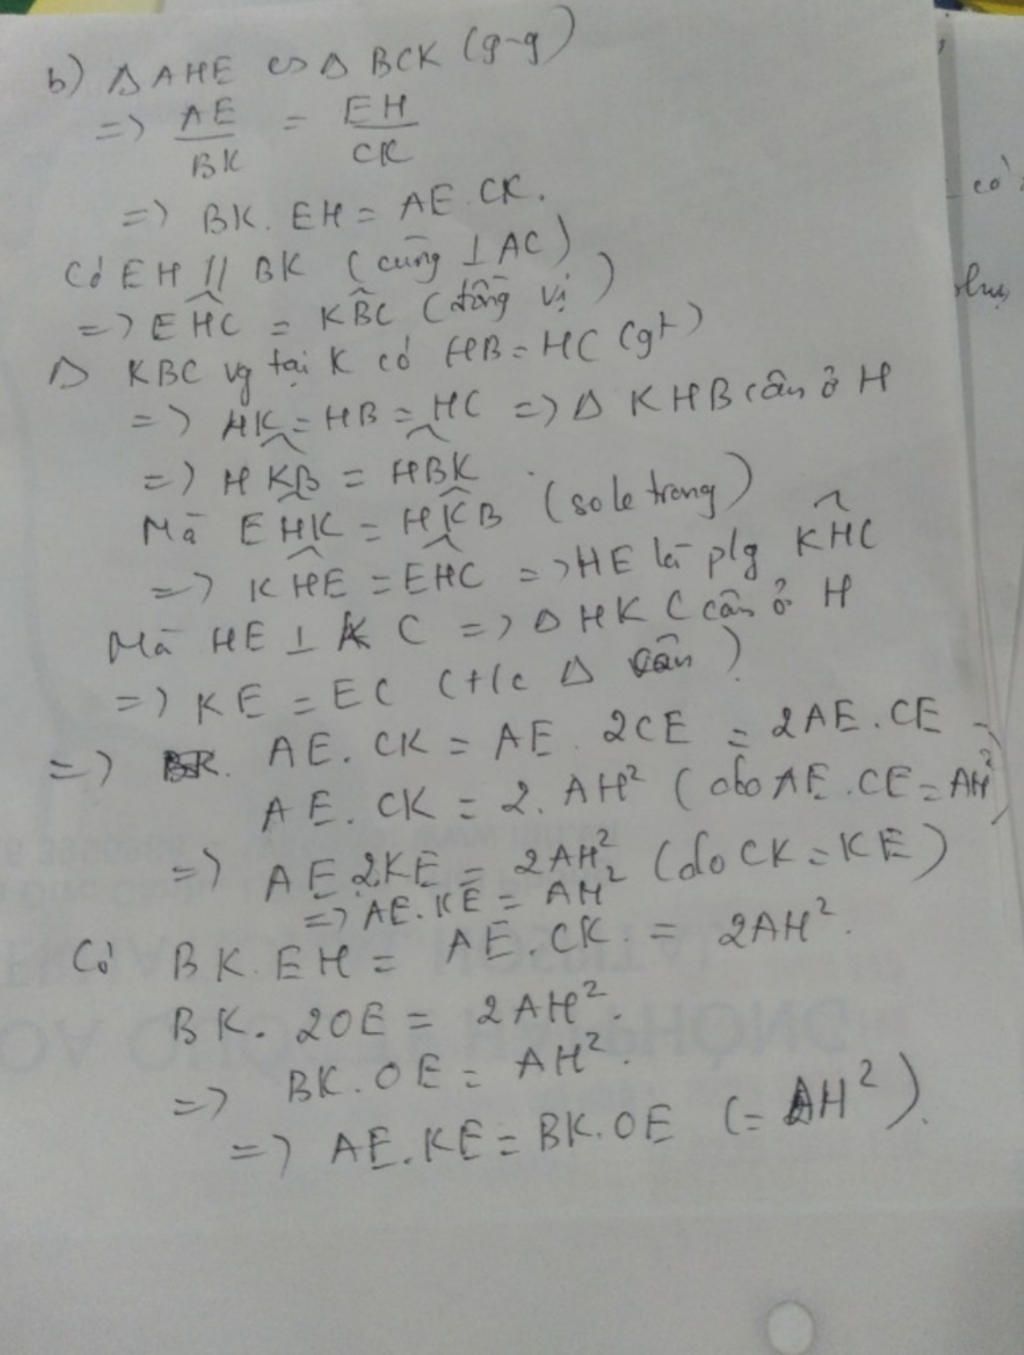 b) Δ AHE ∽ Δ BCK (g-g)
=> AE/BK = EH/CK
=> BK. EH = AE. CK.
Có EH // BK (cùng ⊥ AC)
=> EHC = KBC (đồng vị)
Δ KBC vg tại K có HB = HC (gt)
=> HK = HB = HC => Δ KHB cân ở H
=> HKB = HBK
Mà EHK = HKB (so le trong)
=> KHE = EHC => HE là plg KHC
Mà HE ⊥ KC => Δ HKC cân ở H
=> KE = EC (t/c Δ cân)
=> AE. CK = AE. 2CE = 2AE. CE
AE. CK = 2. AH² (do AE. CE = AH²)
=> AE. 2KE = 2AH² (do CK = KE)
=> AE. KE = AH²
Có BK. EH = AE. CK. = 2AH².
BK. 2OE = 2AH².
=> BK. OE = AH².
=> AE. KE = BK. OE (= AH²).
có